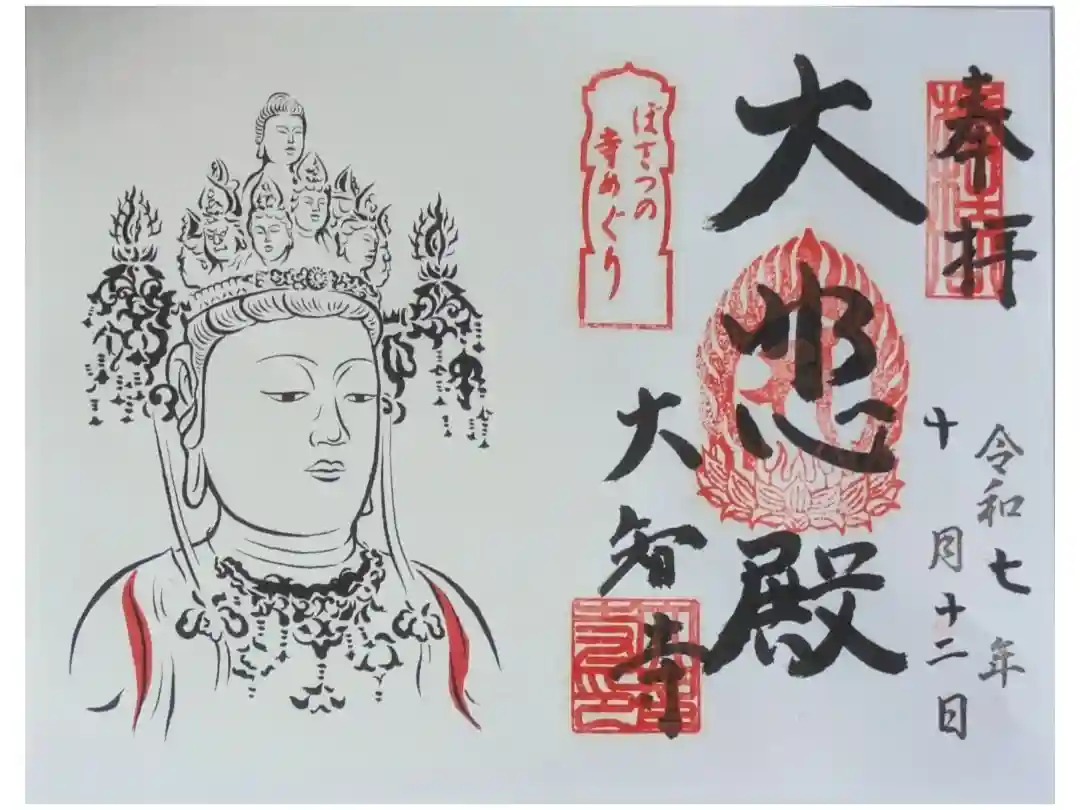 奉拝
令和七年
十月十二日
大悲殿
ぼさつの
寺めぐり
大智寺